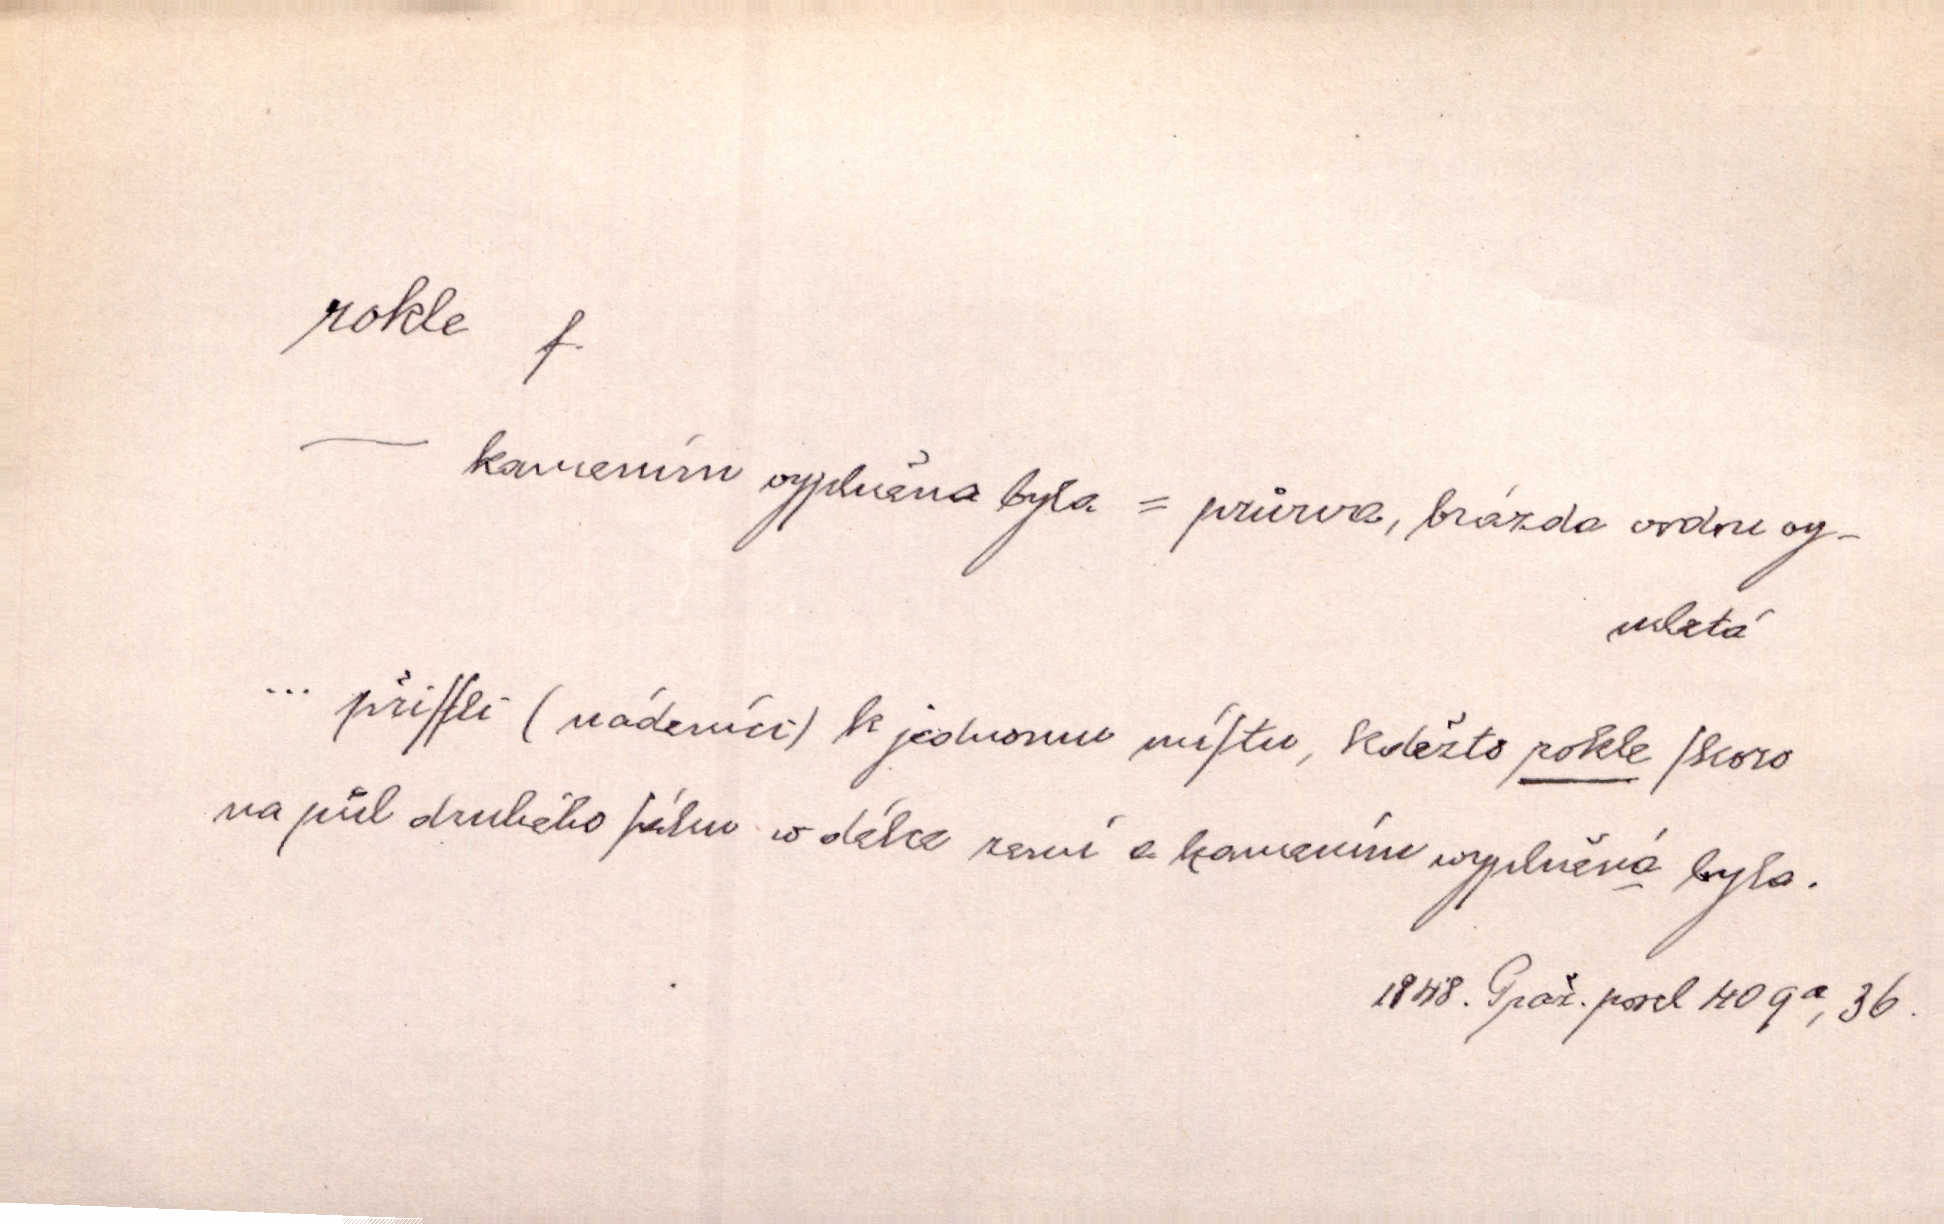 rokle f.
— kamením vyplněna byla = průrva, brázda vodou vy-
mletá
... přiſſli (nádeníci) k jednomu míſtu, kdežto rokle ſkoro
na půl druhého ſáhu w délce zemí a kamením wyplněná byla.
1848. Praž. posel 409a, 36.